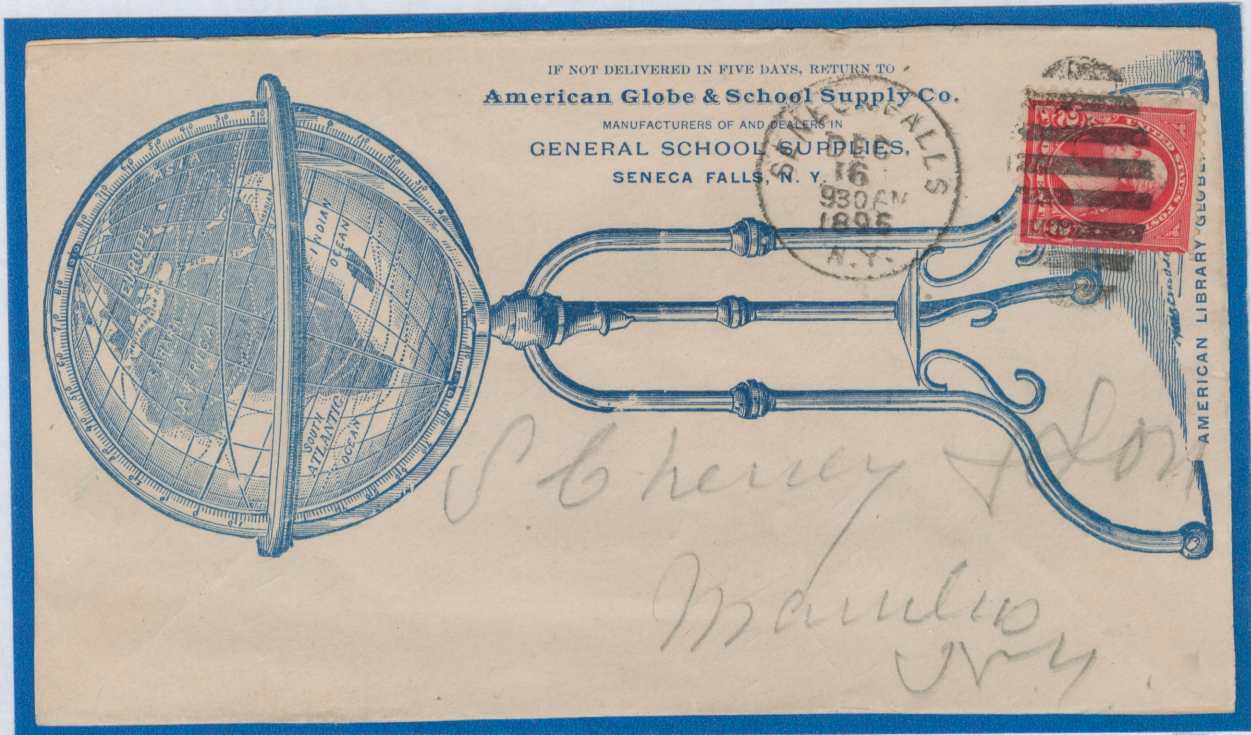 IF NOT DELIVERED IN FIVE DAYS, RETURN TO
American Globe & School Supply Co.
MANUFACTURERS OF AND DEALERS IN
GENERAL SCHOOL SUPPLIES,
SENECA FALLS, N. Y.
SENECA FALLS
DEC
16
930 AM
1895
N.Y.
UNITED STATES POST
AMERICAN LIBRARY GLOBE
ASIA
EUROPE
AFRICA
INDIAN
OCEAN
SOUTH
ATLANTIC
OCEAN
S Cheney & Son
Manlius
N.Y.